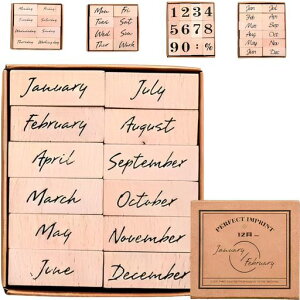 Mon Fri
Tues Sat
Wed Sun
Thur Work
1 2 3 4
5 6 7 8
9 0 : %
Jan Jul
Feb Aug
Apr Sep
Mar Oct
May Nov
Jun Dec
January July
February August
April September
March October
May November
June December
PERFECT IMPRINT
12
January
February